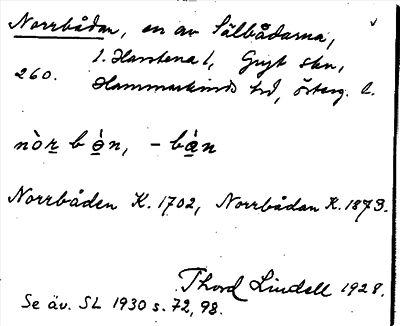 Norrbådan, en av Sälbådarna,
1. Harstena 1, Gryt skn,
260. Hammarkinds hd, Österg. l.
nòr bå̀n, - bà̱n
Norrbåden K. 1702, Norrbådan K. 1873.
Thord Lindell 1928.
Se äv. SL 1930 s. 72, 98.